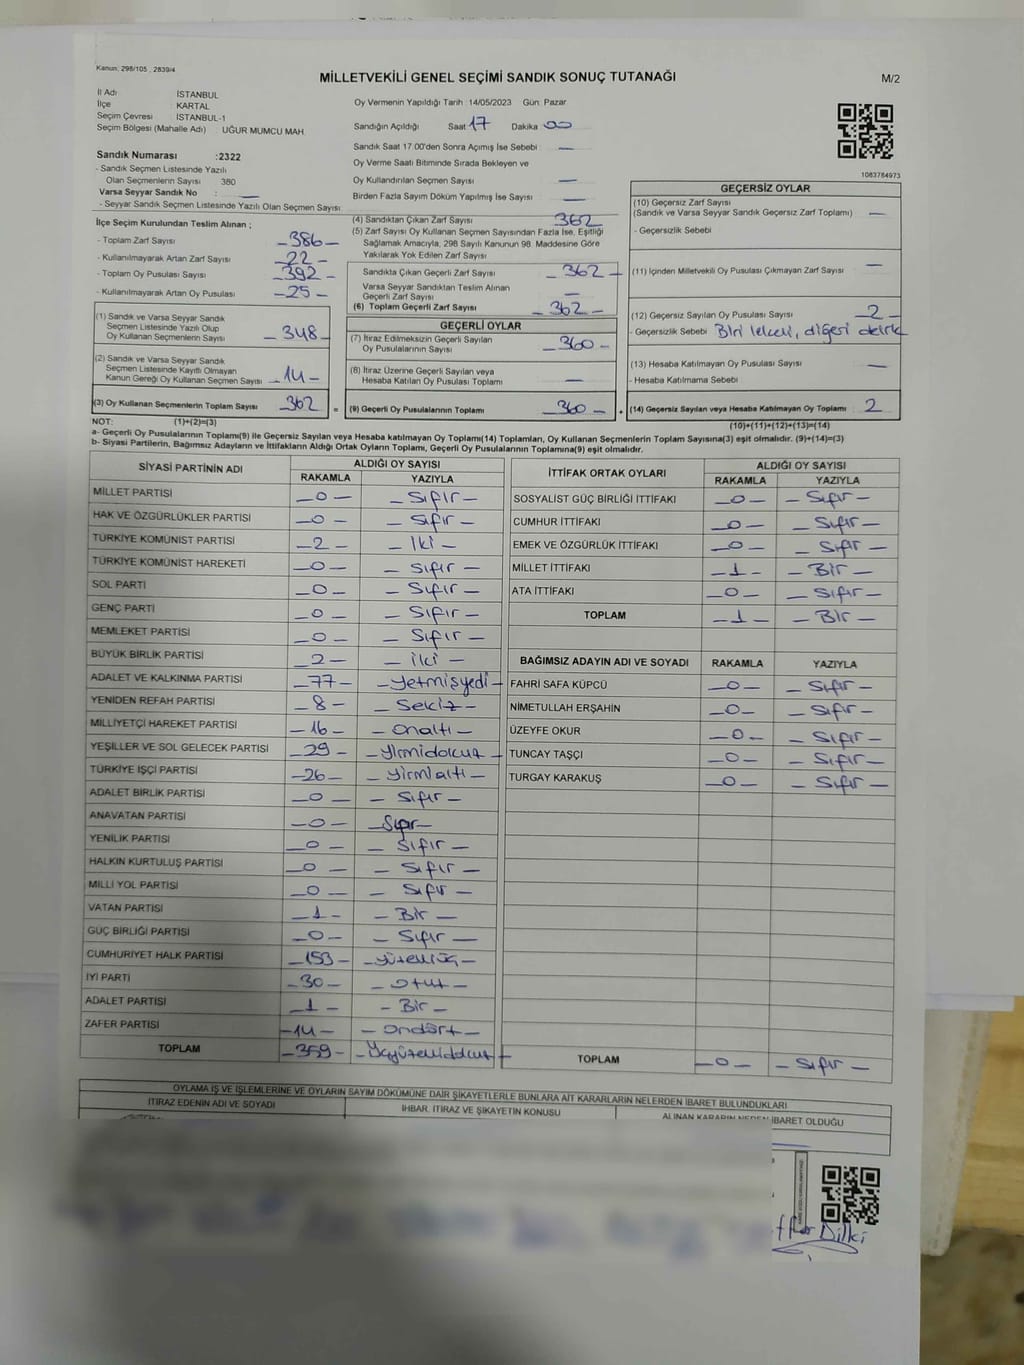 Kanun: 298/105 , 2839/4
MİLLETVEKİLİ GENEL SEÇİMİ SANDIK SONUÇ TUTANAĞI
M/2
İl Adı İSTANBUL
İlçe KARTAL
Seçim Çevresi İSTANBUL-1
Seçim Bölgesi (Mahalle Adı) : UĞUR MUMCU MAH.
Sandık Numarası :2322
- Sandık Seçmen Listesinde Yazılı
Olan Seçmenlerin Sayısı 380
Varsa Seyyar Sandık No : —
- Seyyar Sandık Seçmen Listesinde Yazılı Olan Seçmen Sayısı
Oy Vermenin Yapıldığı Tarih : 14/05/2023 Gün: Pazar
Sandığın Açıldığı Saat 17 Dakika 00
Sandık Saat 17:00'den Sonra Açımış İse Sebebi : —
Oy Verme Saati Bitiminde Sırada Bekleyen ve
Oy Kullandırılan Seçmen Sayısı —
Birden Fazla Sayım Döküm Yapılmış İse Sayısı —
1083784973
İlçe Seçim Kurulundan Teslim Alınan ;
- Toplam Zarf Sayısı —386—
- Kullanılmayarak Artan Zarf Sayısı —22—
- Toplam Oy Pusulası Sayısı —392—
- Kullanılmayarak Artan Oy Pusulası —25—
(1) Sandık ve Varsa Seyyar Sandık
Seçmen Listesinde Yazılı Olup
Oy Kullanan Seçmenlerin Sayısı — 348—
(2) Sandık ve Varsa Seyyar Sandık
Seçmen Listesinde Kayıtlı Olmayan
Kanun Gereği Oy Kullanan Seçmen Sayısı —14—
(3) Oy Kullanan Seçmenlerin Toplam Sayısı —362
(4) Sandıktan Çıkan Zarf Sayısı 362
(5) Zarf Sayısı Oy Kullanan Seçmen Sayısından Fazla İse, Eşitliği
Sağlamak Amacıyla, 298 Sayılı Kanunun 98. Maddesine Göre
Yakılarak Yok Edilen Zarf Sayısı
Sandıkta Çıkan Geçerli Zarf Sayısı — 362 —
Varsa Seyyar Sandıktan Teslim Alınan
Geçerli Zarf Sayısı —
(6) Toplam Geçerli Zarf Sayısı — 362—
GEÇERLİ OYLAR
(7) İtiraz Edilmeksizin Geçerli Sayılan
Oy Pusulalarının Sayısı —360 —
(8) İtiraz Üzerine Geçerli Sayılan veya
Hesaba Katılan Oy Pusulası Toplamı —
= (9) Geçerli Oy Pusulalarının Toplamı —360 —
GEÇERSİZ OYLAR
(10) Geçersiz Zarf Sayısı
(Sandık ve Varsa Seyyar Sandık Geçersiz Zarf Toplamı) —
- Geçersizlik Sebebi
(11) İçinden Milletvekili Oy Pusulası Çıkmayan Zarf Sayısı —
(12) Geçersiz Sayılan Oy Pusulası Sayısı — 2 —
- Geçersizlik Sebebi Biri lekeli, diğeri
(13) Hesaba Katılmayan Oy Pusulası Sayısı —
- Hesaba Katılmama Sebebi
+ (14) Geçersiz Sayılan veya Hesaba Katılmayan Oy Toplamı 2
NOT: (1)+(2)=(3)
(10)+(11)+(12)+(13)=(14)
a- Geçerli Oy Pusulalarının Toplamı(9) ile Geçersiz Sayılan veya Hesaba katılmayan Oy Toplamı(14) Toplamları, Oy Kullanan Seçmenlerin Toplam Sayısına(3) eşit olmalıdır. (9)+(14)=(3)
b- Siyasi Partilerin, Bağımsız Adayların ve İttifakların Aldığı Ortak Oyların Toplamı, Geçerli Oy Pusulalarının Toplamına(9) eşit olmalıdır.
SİYASİ PARTİNİN ADI ALDIĞI OY SAYISI
RAKAMLA YAZIYLA
MİLLET PARTİSİ —0— —Sıfır—
HAK VE ÖZGÜRLÜKLER PARTİSİ —0— —Sıfır—
TÜRKİYE KOMÜNİST PARTİSİ —2— —İki—
TÜRKİYE KOMÜNİST HAREKETİ —0— —Sıfır—
SOL PARTİ —0— —Sıfır—
GENÇ PARTİ —0— —Sıfır—
MEMLEKET PARTİSİ —0— —Sıfır—
BÜYÜK BİRLİK PARTİSİ —2— —iki—
ADALET VE KALKINMA PARTİSİ —77— —Yetmişyedi—
YENİDEN REFAH PARTİSİ —8— —Sekiz—
MİLLİYETÇİ HAREKET PARTİSİ —16— —onaltı—
YEŞİLLER VE SOL GELECEK PARTİSİ —29— —Yirmidokuz—
TÜRKİYE İŞÇİ PARTİSİ —26— —Yirmialtı—
ADALET BİRLİK PARTİSİ —0— —Sıfır—
ANAVATAN PARTİSİ —0— —Sıfır—
YENİLİK PARTİSİ —0— —Sıfır—
HALKIN KURTULUŞ PARTİSİ —0— —Sıfır—
MİLLİ YOL PARTİSİ —0— —Sıfır—
VATAN PARTİSİ —1— —Bir—
GÜÇ BİRLİĞİ PARTİSİ —0— —Sıfır—
CUMHURİYET HALK PARTİSİ —153—
İYİ PARTİ —30— —otuz—
ADALET PARTİSİ —1— —Bir—
ZAFER PARTİSİ —14— —ondört—
TOPLAM —359— —Üçyüzellidokuz—
İTTİFAK ORTAK OYLARI ALDIĞI OY SAYISI
RAKAMLA YAZIYLA
SOSYALİST GÜÇ BİRLİĞİ İTTİFAKI —0— —Sıfır—
CUMHUR İTTİFAKI —0— —Sıfır—
EMEK VE ÖZGÜRLÜK İTTİFAKI —0— —Sıfır—
MİLLET İTTİFAKI —1— —Bir—
ATA İTTİFAKI —0— —Sıfır—
TOPLAM —1— —Bir—
BAĞIMSIZ ADAYIN ADI VE SOYADI RAKAMLA YAZIYLA
FAHRİ SAFA KÜPCÜ —0— —Sıfır—
NİMETULLAH ERŞAHİN —0— —Sıfır—
ÜZEYFE OKUR —0— —Sıfır—
TUNCAY TAŞÇI —0— —Sıfır—
TURGAY KARAKUŞ —0— —Sıfır—
TOPLAM —0— —Sıfır—
OYLAMA İŞ VE İŞLEMLERİNE VE OYLARIN SAYIM DÖKÜMÜNE DAİR ŞİKAYETLERLE BUNLARA AİT KARARLARIN NELERDEN İBARET BULUNDUKLARI
İTİRAZ EDENİN ADI VE SOYADI İHBAR, İTİRAZ VE ŞİKAYETİN KONUSU ALINAN KARARIN NEDEN İBARET OLDUĞU
Dilki